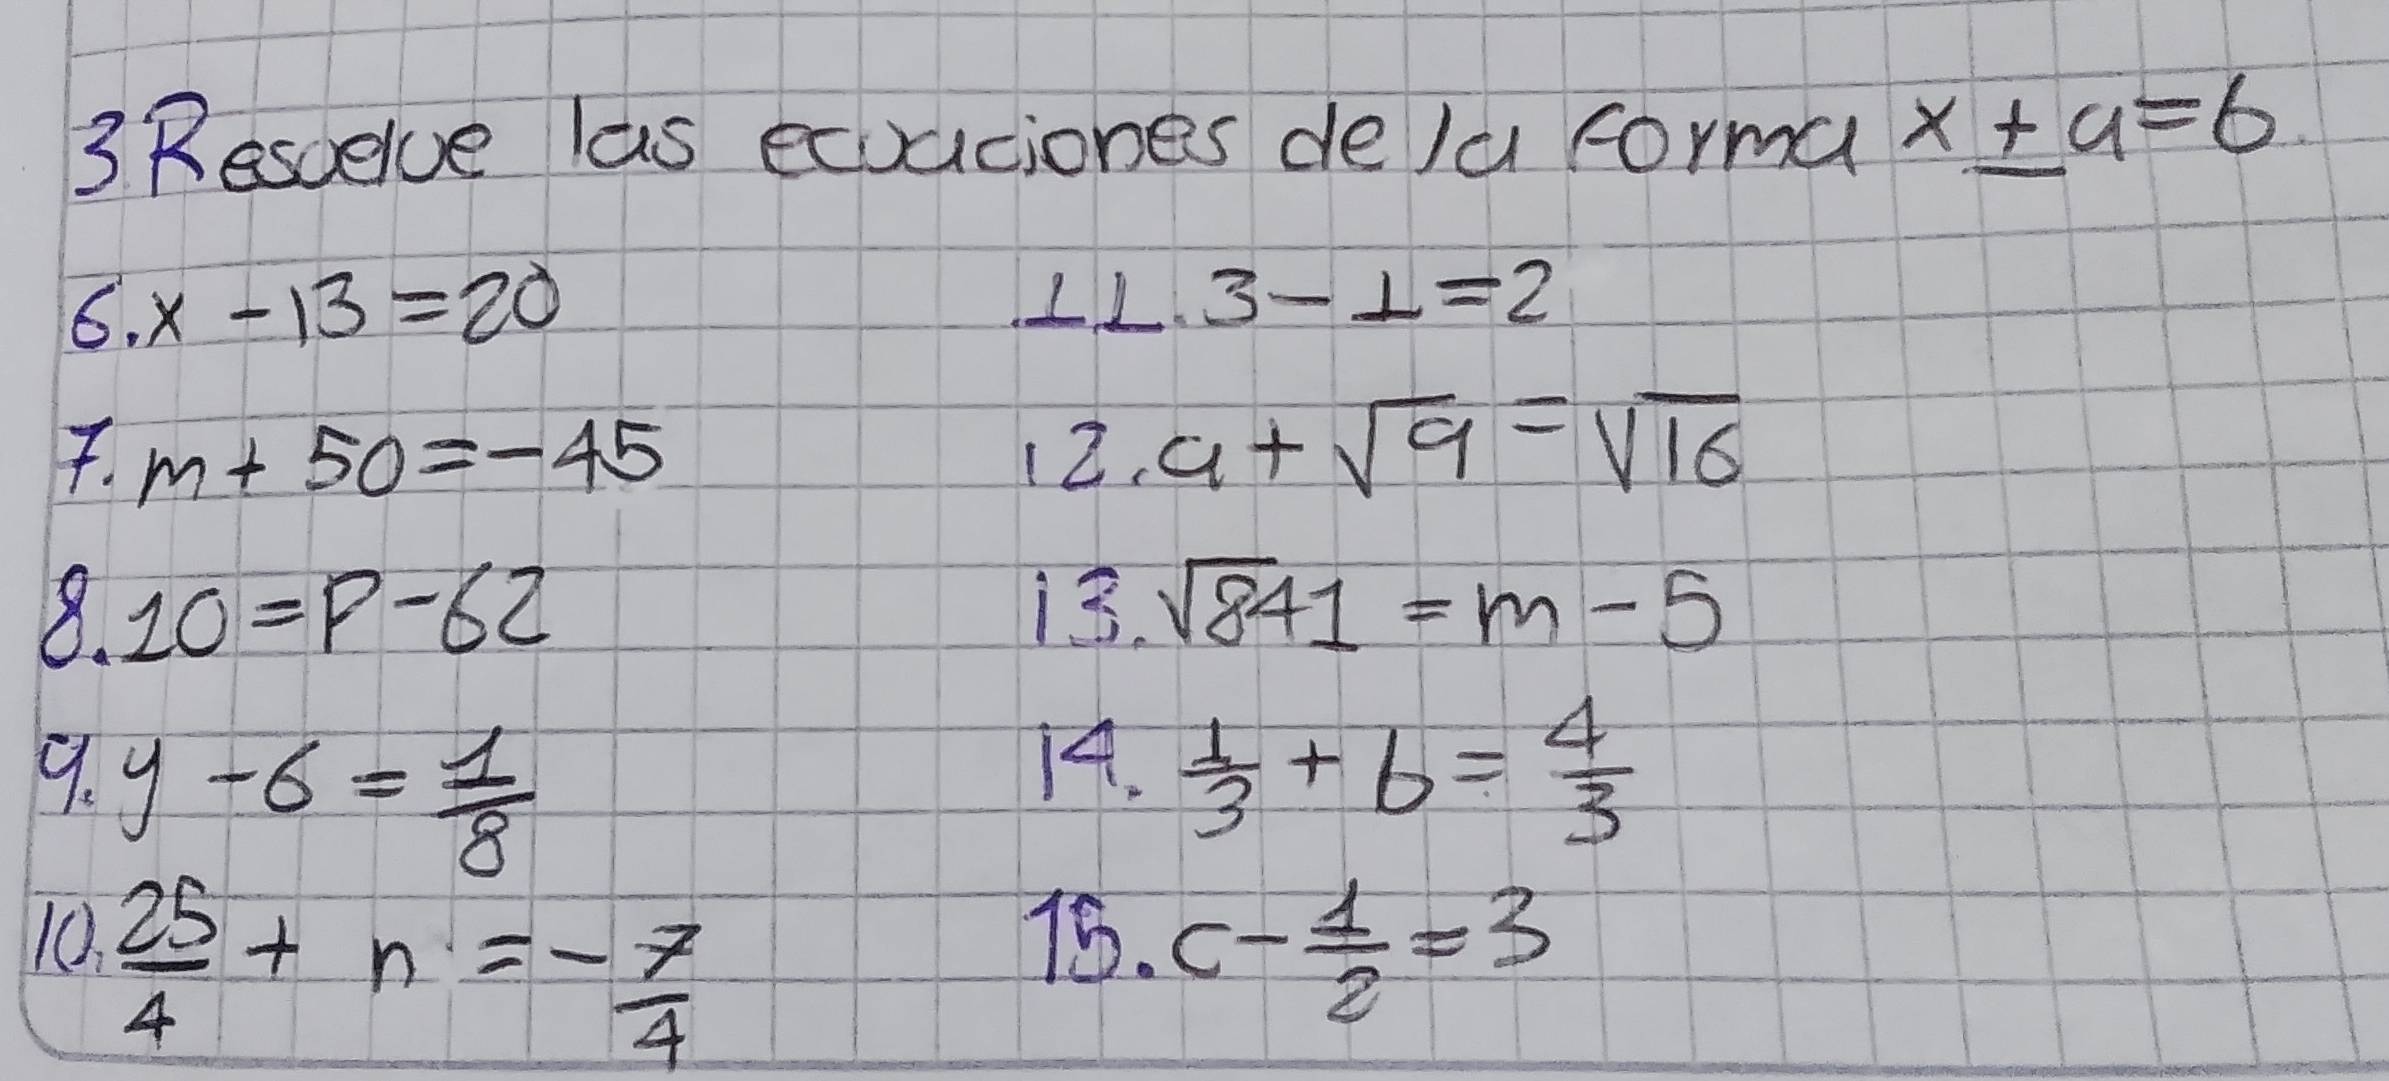 3. Resuelve las ecuaciones de la forma x ± a = 6.
6. x - 13 = 20
7. m + 50 = -45
8. 10 = P - 62
9. y - 6 = 1/8
10. 25/4 + n = - 7/4
11. 3 - 1 = 2
12. a + √9 = √16
13. √841 = m - 5
14. 1/3 + b = 4/3
15. c - 1/2 = 3